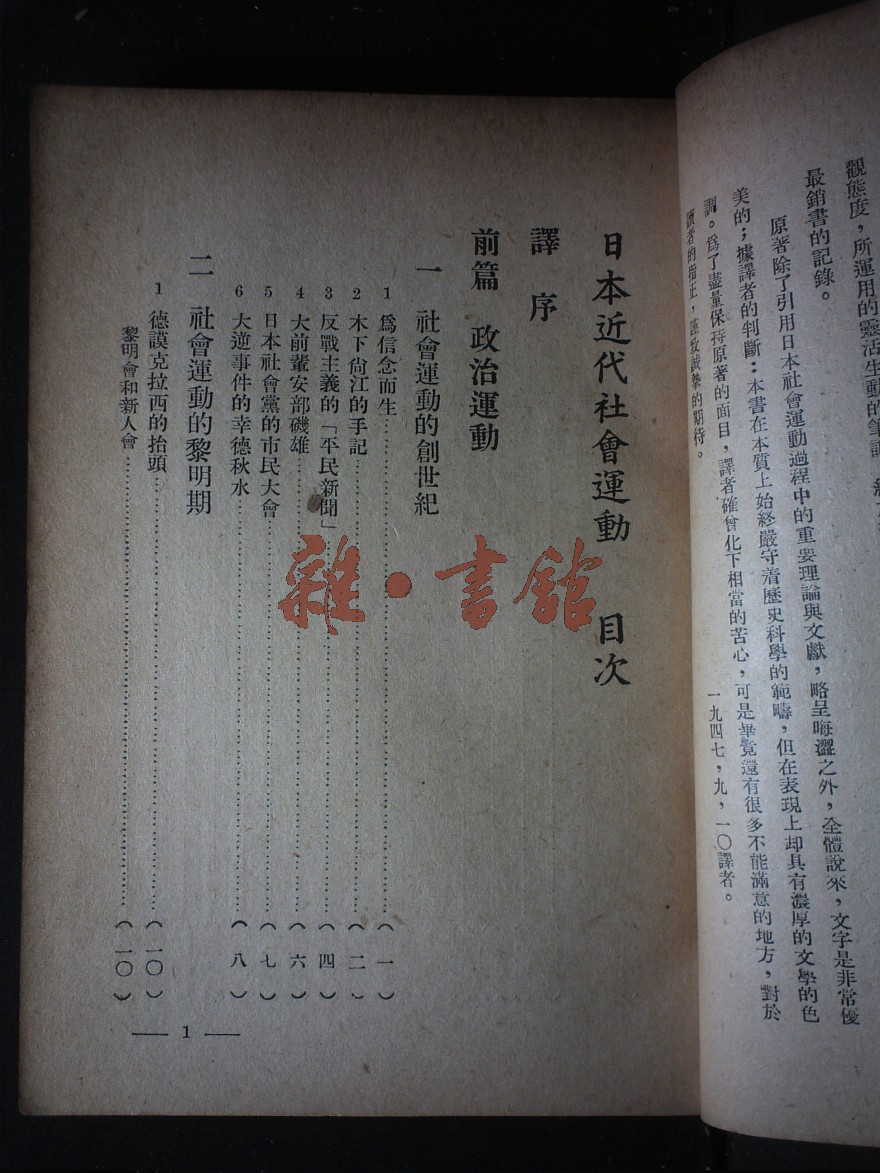 觀態度，所運用的靈活生動的筆調，
最銷書的記錄。
原著除了引用日本社會運動過程中的重要理論與文獻，略呈晦澀之外，全體說來，文字是非常優
美的；據譯者的判斷：本書在本質上始終嚴守着歷史科學的範疇，但在表現上却具有濃厚的文學的色
調。爲了盡量保持原著的面目，譯者確曾化下相當的苦心，可是畢竟還有很多不能滿意的地方，對於
讀者的指正，謹致誠摯的期待。
一九四七，九，一〇譯者。
日本近代社會運動 目次
譯序
前篇 政治運動
一 社會運動的創世紀
1 爲信念而生……（一）
2 木下尙江的手記……（二）
3 反戰主義的「平民新聞」……（四）
4 大前輩安部磯雄……（六）
5 日本社會黨的市民大會……（七）
6 大逆事件的幸德秋水……（八）
二 社會運動的黎明期
1 德謨克拉西的抬頭……（一〇）
黎明會和新人會……（一〇）
— 1 —
雜·書館